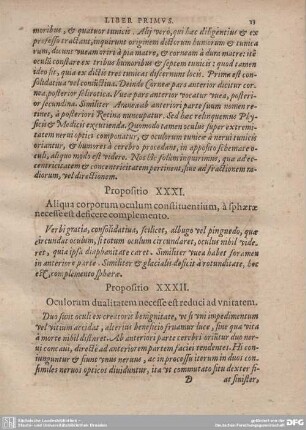 LIBER PRIMUS. 13
moribus, & quatuor tunicis. Alij verò, qui hæc diligentius & ex
professo tractant, inquirunt originem dictorum humorum & tunica
rum, dicunt eam oriri à pia matre, & corneam à dura matre: ite
oculū constare ex tribus humoribus & septem tunicis: quod tamen
ideo sit, quia ex dictis tres tunicas discernunt locis. Prima est con
solidativa vel coniunctiva. Deinde Corneæ pars anterior dicitur cor
nea, posterior sclirotica. Vueæ pars anterior vocatur vuea, posteri
or secundina. Similiter Araneæ ab anteriori parte suum nomen re
tinet, à posteriori Retina nuncupatur. Sed hæc relinquemus Phy-
sicis & Medicis exquirenda. Quomodo tamen oculus super extremi-
tatem nervi optici componatur, & oculorum tunicæ à nervi tunicis
oriantur, & humores à cerebro procedant, in apposito schemate o-
culi, aliquo modo est videre. Nos hîc solùm inquirimus, quæ ad ec-
centricitatem & concentricitatem pertinent, sive ad fractionem ra-
diorum, vel directionem.
Propositio XXXI.
Aliqua corporum oculum constituentium, à sphæræ
necesse est deficere complemento.
Verbi gratia, consolidativa, scilicet, albugo vel pinguedo, quæ
circundat oculum, si totum oculum circundaret, oculus nihil vide
ret, quia ipsa diaphanitate caret. Similiter vuea habet foramen
in anteriore parte. Similiter & glacialis desicit à rotunditate, hoc
est, complemento sphæræ.
Propositio XXXII.
Oculorum dualitatem necesse est reduci ad vnitatem.
Duo sunt oculi ex creatoris benignitate, vt si vni impedimentum
vel vitium accidat, alterius beneficio fruamur luce, sine qua vita
à morte nihil distaret. Ab anteriori parte cerebri oriūtur duo ner-
vi concavi, directè ad anteriorem partem faciei tendentes. Hi con-
iunguntur & fiunt vnus nervus, at in processu iterum in duos con
similes nervos opticos dividuntur, ita vt commutato situ dexter fi-
D at sinister,